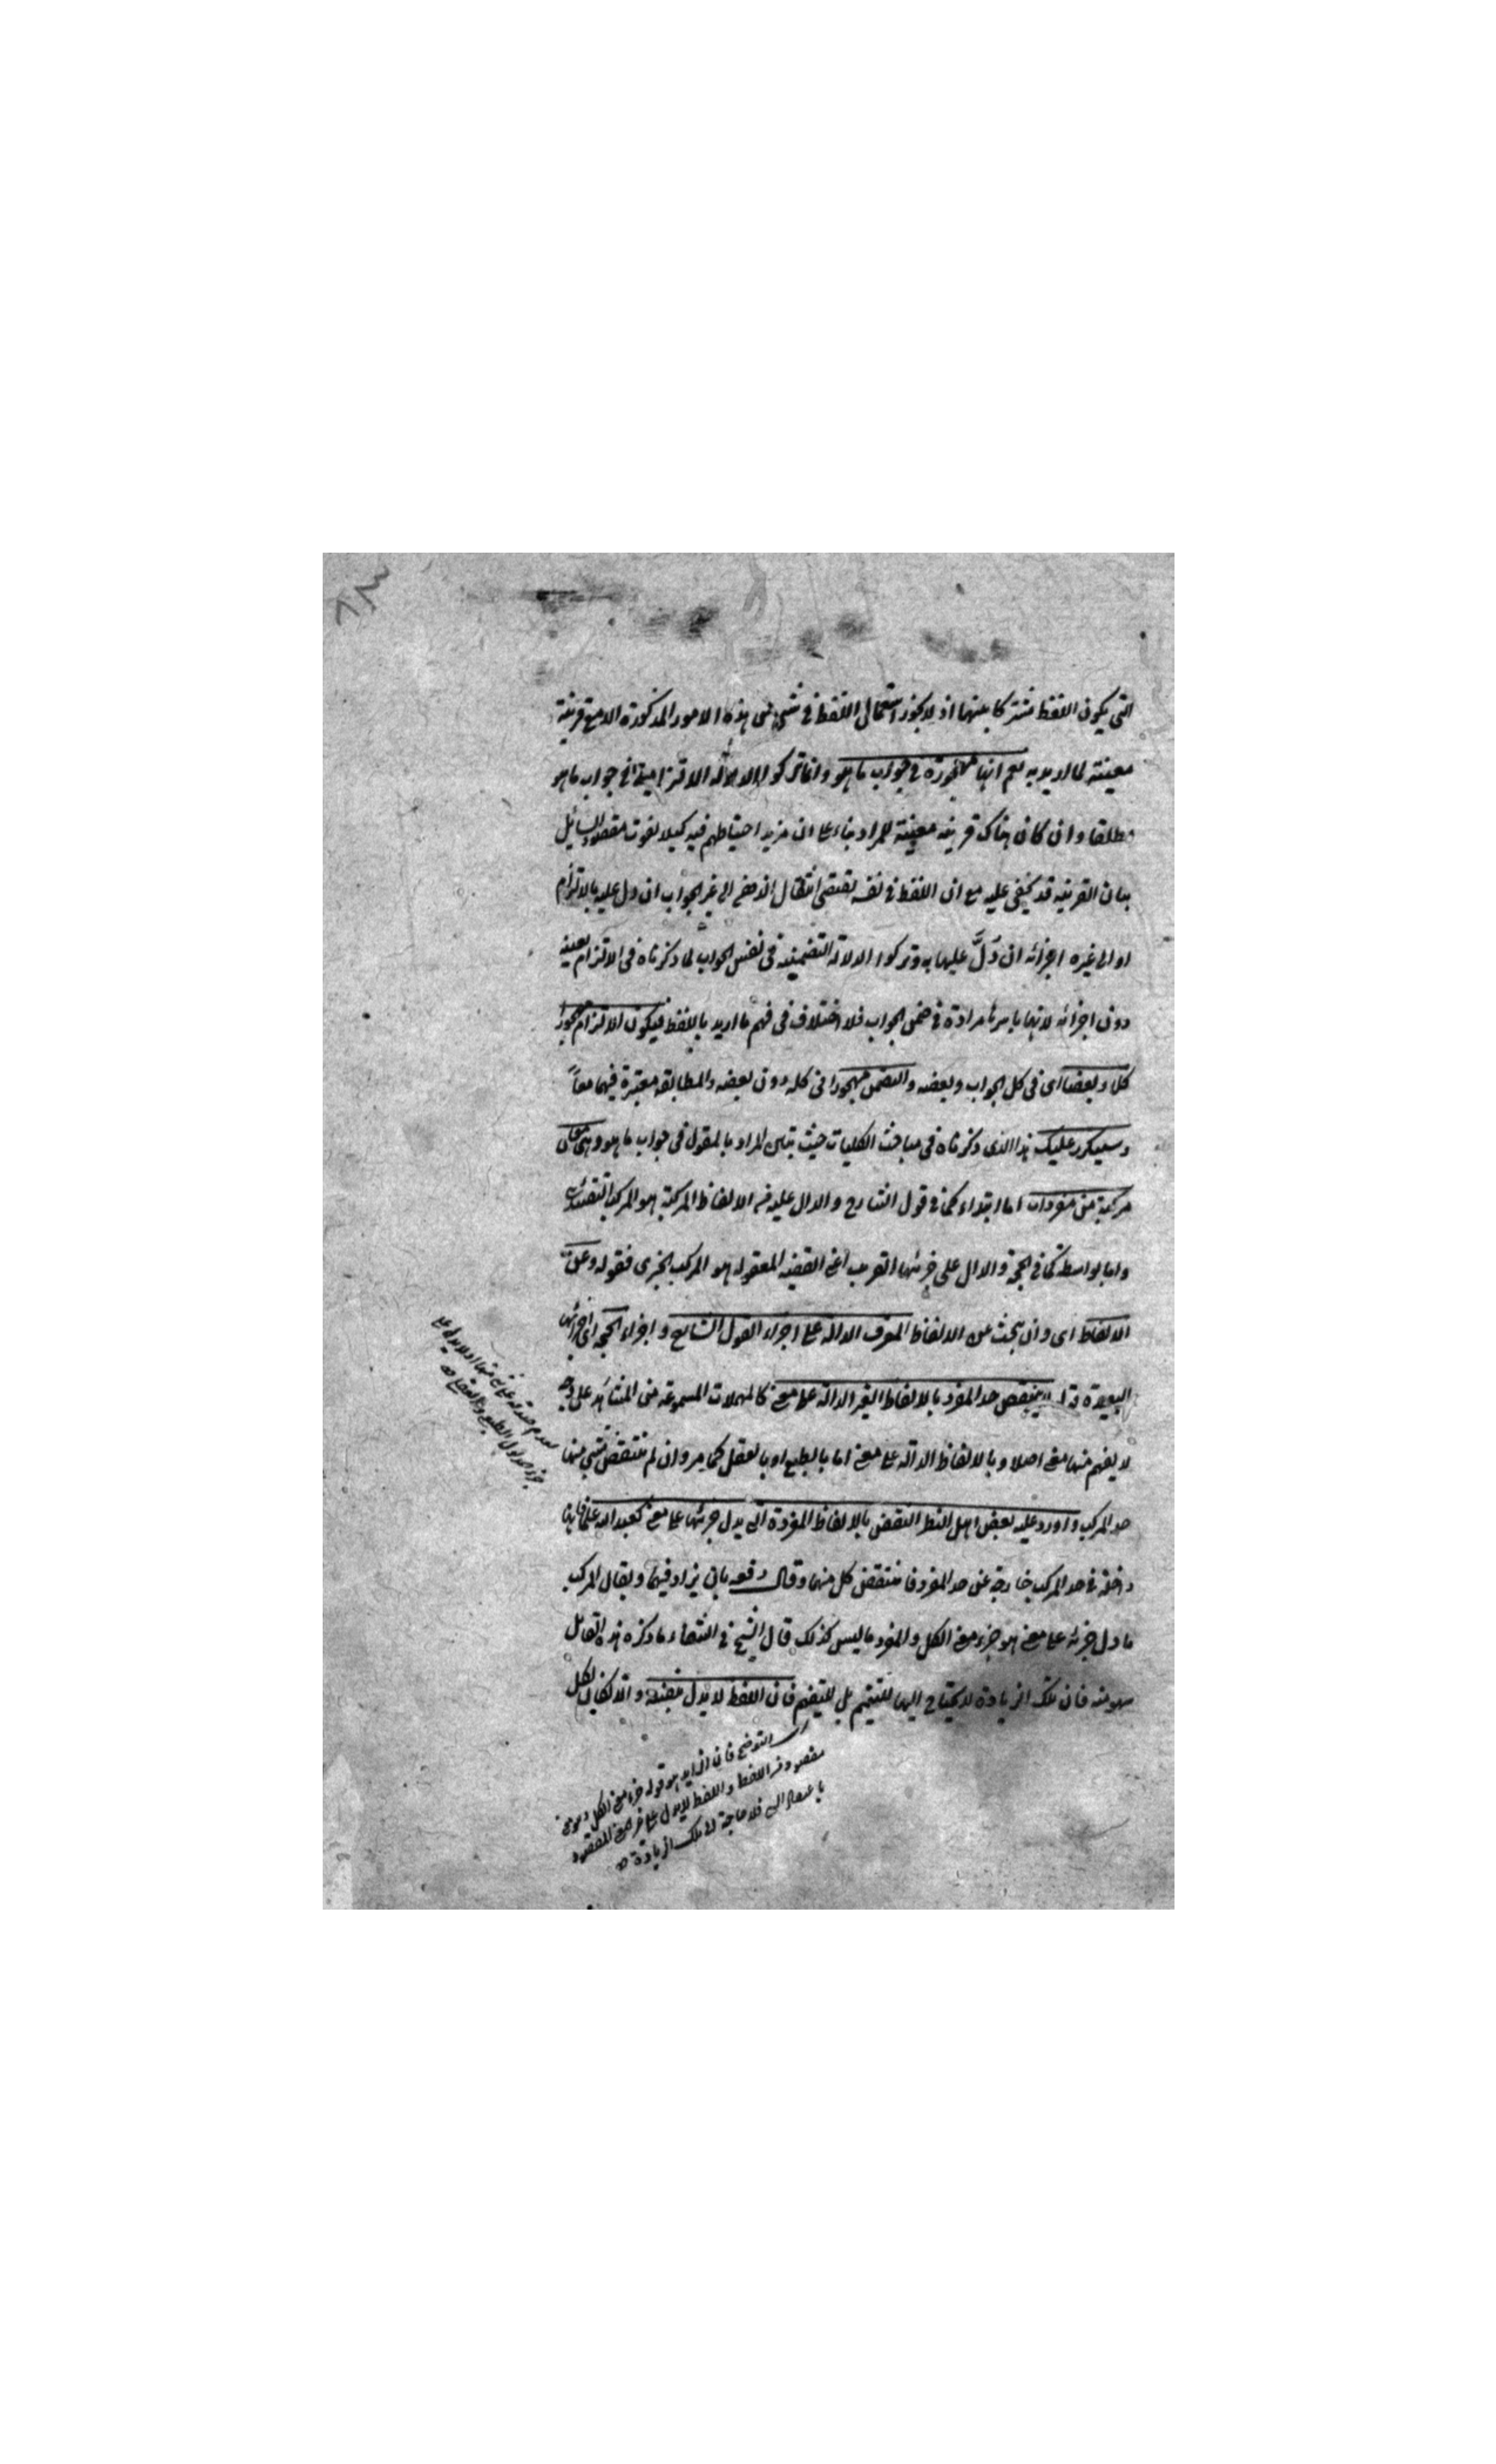 التى يكون اللفظ مشتركا بينها اذ لا يجوز استعمال اللفظ فى شىء من هذه الامور المذكورة الا مع قرينة
معينة لما اريد به مع انها مهجورة فى جواب ما هو وانما تركوا الدلالة الالتزامية فى جواب ما هو
مطلقا وان كان هناك قرينه معينة للمراد بناء على ان مزيد احتياطهم فيه كيلا يفوت مقصود السائل
بان القرينه قد يخفى عليه مع ان اللفظ فى نفسه يقتضى انتقال الذهن الى غير الجواب ان دل عليه بالالتزام
او الى غيره اجزائه ان دَلَّ عليها به وتركوا الدلالة التضمنية فى نفس الجواب لما ذكرناه فى الالتزام بعينه
دون اجزائه لانها باسرها مرادة فى ضمن الجواب فلا اختلاف فى فهم ما اريد باللفظ فيكون الالتزام مهجورا
كلا وبعضا اى فى كل الجواب وبعضه والتضمن مهجورا فى كله دون بعضه والمطابقه معتبرة فيهما معاً
وسيكرر عليك هذا الذى ذكرناه فى مباحث الكليات حيث تبين المراد بالمقول فى جواب ما هو وهى معان
مركبة من مفردات اما ابتداء كما فى قول الشارح والدال عليه من الالفاظ المركبة هو المركب التقييدى
واما بواسطة كما فى الحجة والدال على جزئها القريب اعنى القضيه المعقوله هو المركب الخبرى فقوله وعن
الالفاظ اى وان يبحث عن الالفاظ المعرف الدالة على اجزاء القول الشارح واجزاء الحجة اى اجزائها
البعيدة ينتقض حد المفرد بالالفاظ الغير الدالة على معنى كالمهملات المسموعه من المشاهد على وجه
لا يفهم منها معنى اصلا وبالالفاظ الدالة على معنى اما بالطبع او بالعقل كما مر وان لم ينتقض شىء منها
حد المركب واورد عليه بعض اهل النظر النقض بالالفاظ المفردة التى يدل جزئها على معنى كعبد الله علما فانها
داخلة فى حد المركب خارجة عن حد المفرد فانتقض كل منهما وقال دفعه بان يزاد فيهما ويقال المركب
ما دل جزئه على معنى هو جزء معنى الكل والمفرد ما ليس كذلك قال الشيخ فى الشفاء ما ذكره هذا القائل
سهو منه فان تلك الزيادة لا يحتاج اليها للتتميم بل للتفهيم فان اللفظ لا يدل بنفسه والا لكان لكل
لعدم صدقه على شىء منها اذ لا يدل على
جزء مدلول الطبع والعقل
التوضيح فان الزايد هو قوله جزء معنى الكل وهو معنى
مقصود من اللفظ واللفظ لا يدل على جزء المعنى المقصود
باعتباره اليه فلا حاجة الى تلك الزيادة